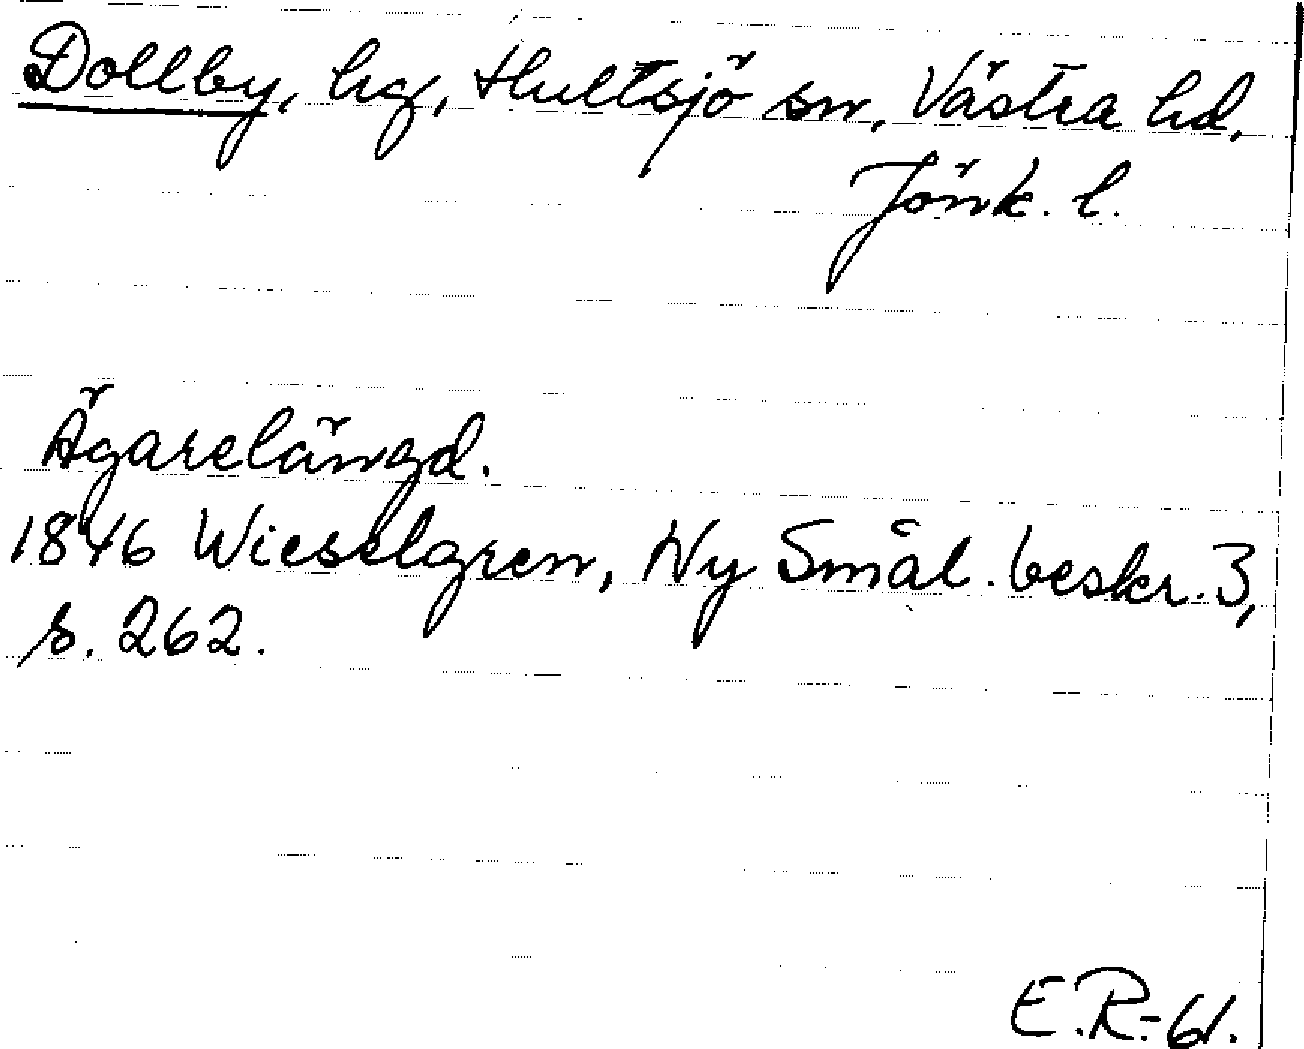 Dollby, hg, Hultsjö sn, Västra hd,
Jönk. l.
Ägarelängd.
1846 Wieselgren, Ny Smål. beskr. 3,
s. 262.
E.R.-61.